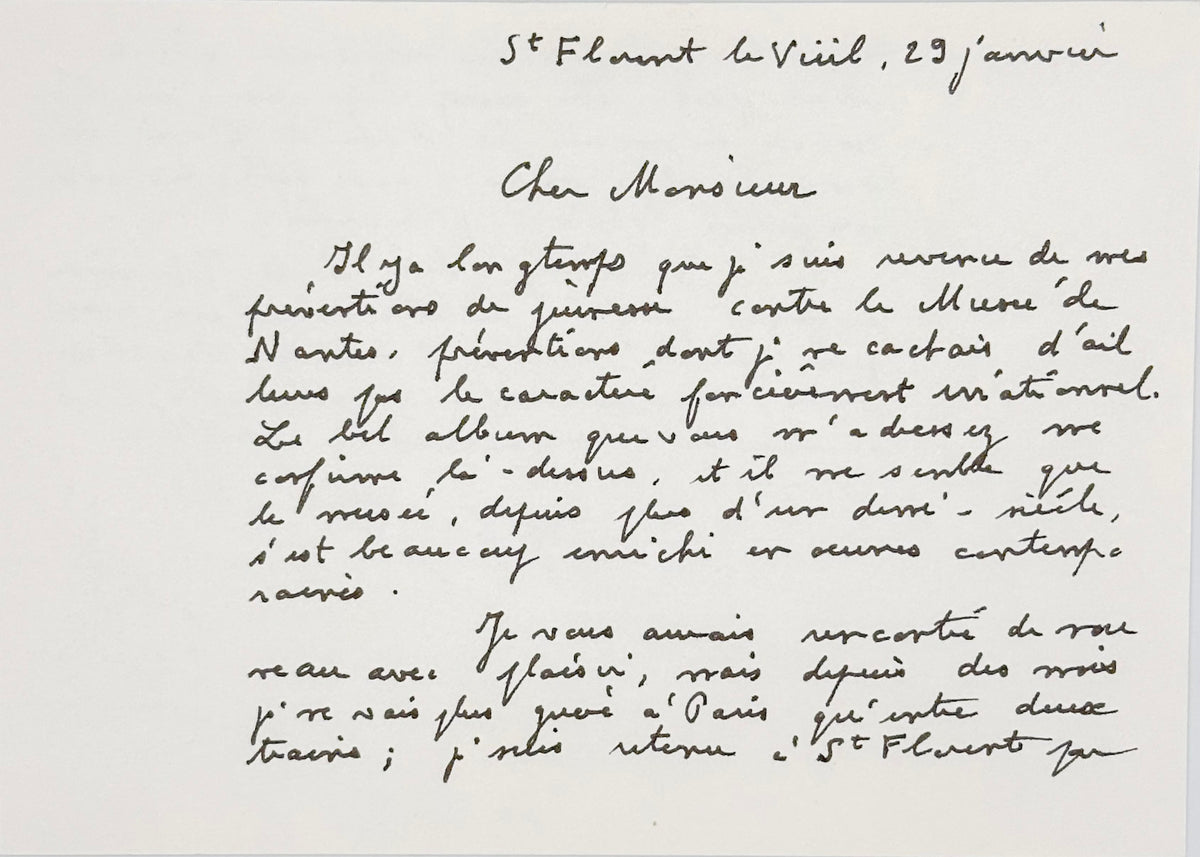 St Florent le Vieil, 29 janvier
Cher Monsieur
Il y a longtemps que je suis revenu de mes
préventions de jeunesse contre le Musée de
Nantes, préventions dont je ne cachais d'ail
leurs pas le caractère foncièrement irrationnel.
Le bel album que vous m'adressez me
confirme là-dessus, et il me semble que
le musée, depuis plus d'un demi-siècle,
s'est beaucoup enrichi en oeuvres contempo
raines.
Je vous aurais rencontré de nou
veau avec plaisir, mais depuis des mois
je ne vais plus guère à Paris qu'entre deux
trains ; je suis retenu à St Florent par